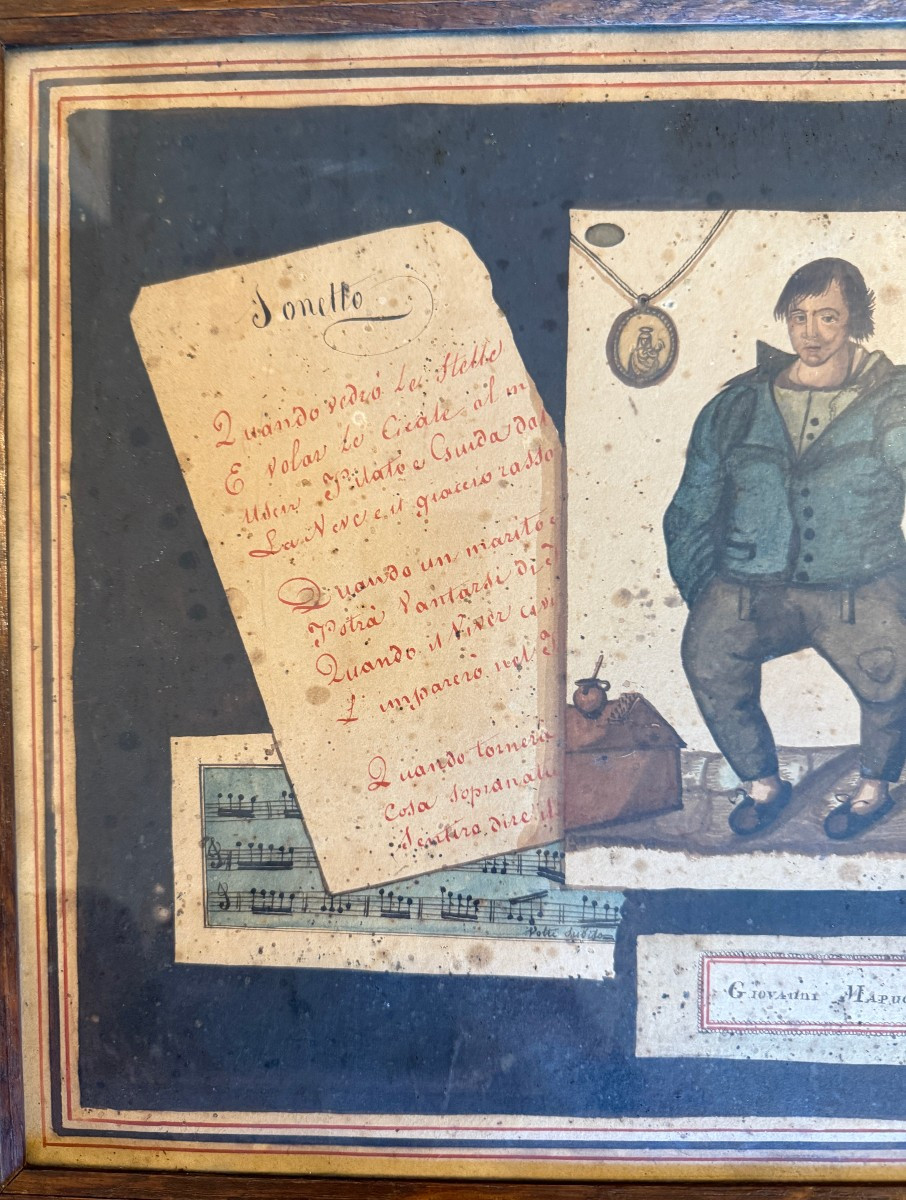 Sonetto
Quando vedrò le Stelle
E volar le Cicale al m
Uscir Pilato e Guida dal
La Neve e il giaccio rasso
Quando un marito
Potrà Vantarsi di
Quando il Viver civi
L' imparerò nel
Quando tornerà
Cosa sopranatu
Sentirò dire il
Volti subito
Giovanni Mapuc